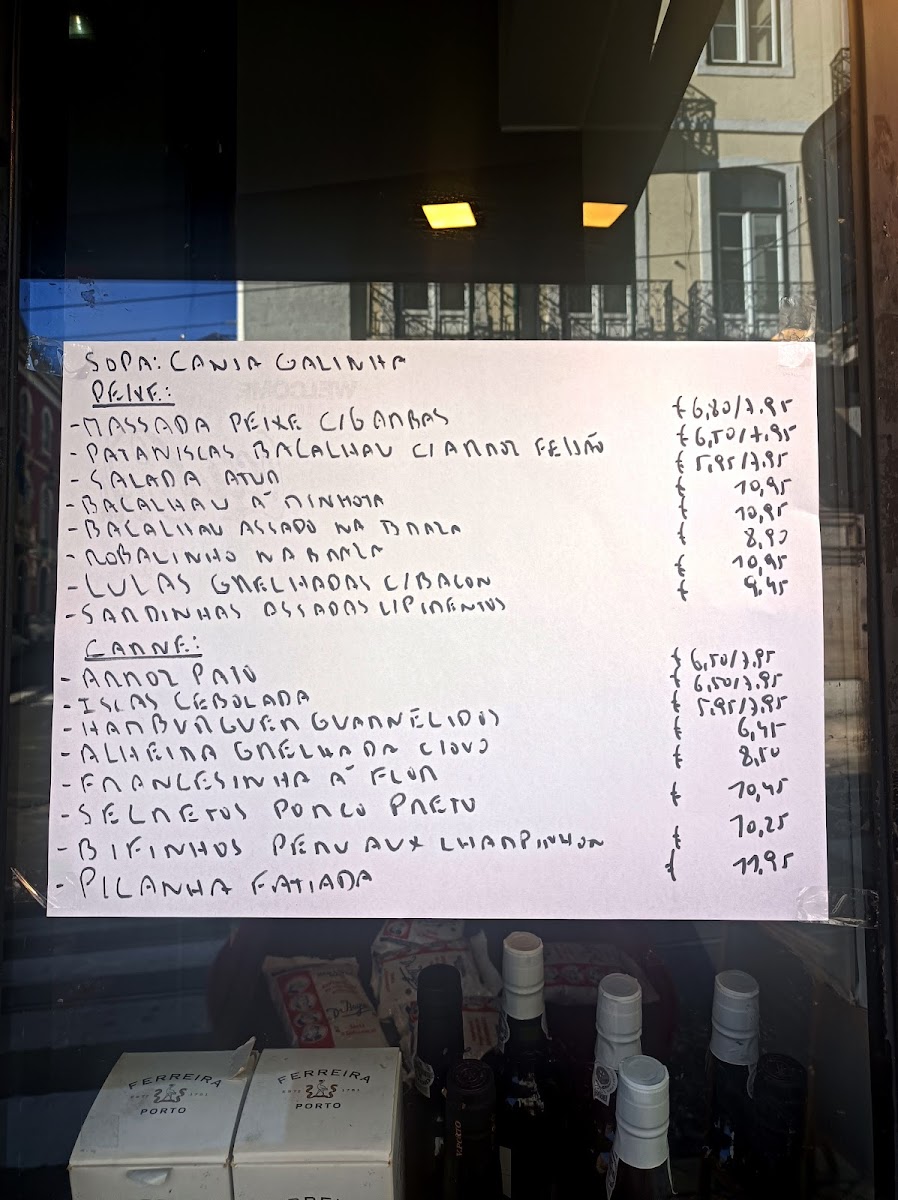 SOPA: CANJA GALINHA
PEIXE:
- MASSADA PEIXE C/GAMBAS € 6,80/7,95
- PATANISCAS BACALHAU C/ARROZ FEIJÃO € 6,50/7,95
- SALADA ATUM € 5,95/7,95
- BACALHAU À MINHOTA € 10,95
- BACALHAU ASSADO NA BRAZA € 10,95
- ROBALINHO NA BRAZA € 8,90
- LULAS GRELHADAS C/BACON € 10,95
- SARDINHAS ASSADAS C/PIMENTOS € 9,45
CARNE:
- ARROZ PATO € 6,50/7,95
- ISCAS CEBOLADA € 6,50/7,95
- HAMBURGUER GUARNÉCIDOS € 5,95/7,95
- ALHEIRA GRELHADA C/OVO € 6,45
- FRANCESINHA À FLOR € 8,50
- SECRETOS PORCO PRETO € 10,45
- BIFINHOS PERU AUX CHAMPINHON € 10,25
- PICANHA FATIADA € 11,95
WELCOME
FERREIRA
PORTO
FERREIRA
PORTO